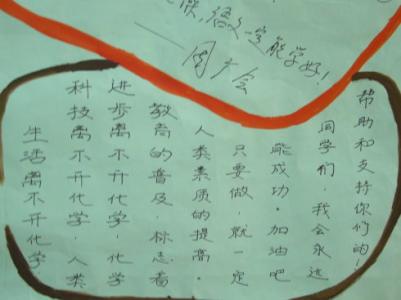 语文一定能学好！
生活离不开化学
科技离不开化学，人类
进步离不开化学，化学
教育的普及，标志着
人类素质的提高。
只要做，就一定
能成功。加油吧
同学们，我会永远
帮助和支持你们的！